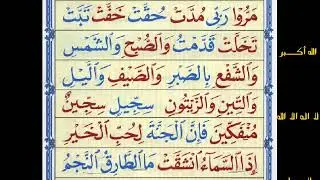 مَرُّوْا رَبِّىْ مُدَّتْ حُقَّتْ خَفَّتْ تَبَّتْ
تَخَلَّتْ قَدَّمَتْ وَالصُّبْحِ وَالشَّمْسِ
وَالشَّفْعِ بِالصَّبْرِ وَالصَّيْفِ وَالَّيْلِ
وَالتِّيْنِ وَالزَّيْتُوْنِ سِجِّيْلٍ سِجِّيْنٌ
مُنْفَكِّيْنَ فَاِنَّ الْجَنَّةَ لِحُبِّ الْخَيْرِ
اِذَا السَّمَآءُ انْشَقَّتْ مَا الطَّارِقُ النَّجْمُ
الله أكبر
لا اله الا الله